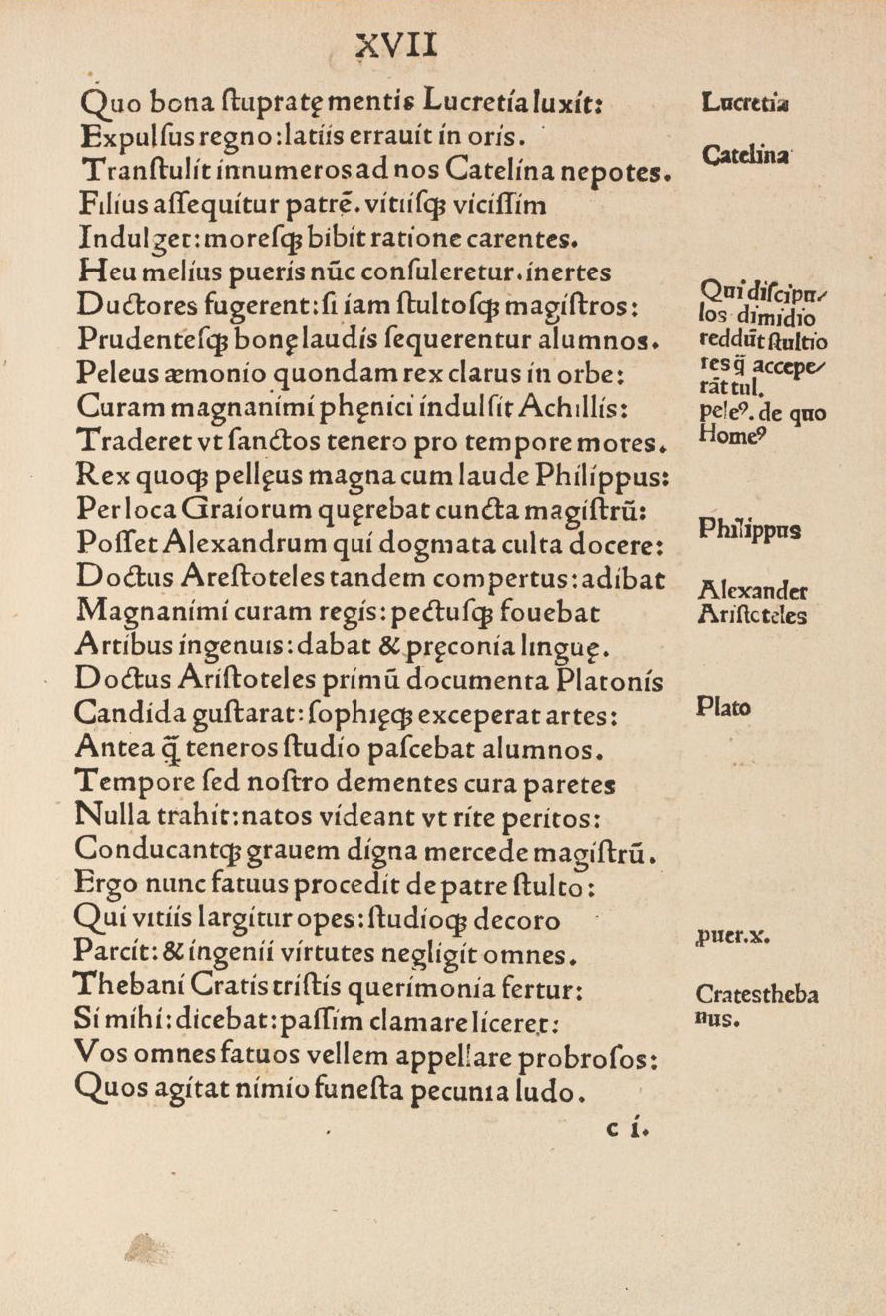 XVII
Quo bona ſtupratę mentis Lucretía luxít:
Expulſus regno: latíis errauít ín orís.
Tranſtulít ínnumeros ad nos Catelína nepotes.
Fílíus aſſequítur patrē. vítíiſqꝫ vícíſſím
Indulget: moreſqꝫ bíbít ratíone carentes.
Heu melíus puerís nūc conſuleretur. ínertes
Ductores fugerent: ſi íam ſtultoſqꝫ magíſtros:
Prudenteſqꝫ bonę laudís ſequerentur alumnos.
Peleus æmonío quondam rex clarus ín orbe:
Curam magnanímí phęnící índulſít Achıllís:
Traderet vt ſanctos tenero pro tempore mores.
Rex quoqꝫ pellęus magna cum laude Phílíppus:
Per loca Graíorum quęrebat cuncta magíſtrū:
Poſſet Alexandrum quí dogmata culta docere:
Doctus Areſtoteles tandem compertus: adíbat
Magnanímí curam regís: pectuſqꝫ fouebat
Artíbus íngenuıs: dabat & pręconía lınguę.
Doctus Aríſtoteles prímū documenta Platonís
Candída guſtarat: ſophıęqꝫ exceperat artes:
Antea q̄ teneros ſtudío paſcebat alumnos.
Tempore ſed noſtro dementes cura paretes
Nulla trahít: natos vídeant vt ríte perítos:
Conducantqꝫ grauem dígna mercede magíſtrū.
Ergo nunc fatuus procedít de patre ſtulto:
Quí vıtíis largítur opes: ſtudíoqꝫ decoro
Parcít: & íngeníi vírtutes neglígít omnes.
Thebaní Cratís tríſtís querímonía fertur:
Sí míhí: dícebat: paſſím clamare líceret:
Vos omnes fatuos vellem appellare probroſos:
Quos agítat nímío funeſta pecunıa ludo.
c í.
Lucretia
Catelina
Qui diſcipu⸗
los dimidio
reddūt ſtultio
res q̄ accepe⸗
rāt tul.
peleꝰ. de quo
Homeꝰ
Philippus
Alexander
Ariſtoteles
Plato
puer.x.
Crates theba
nus.